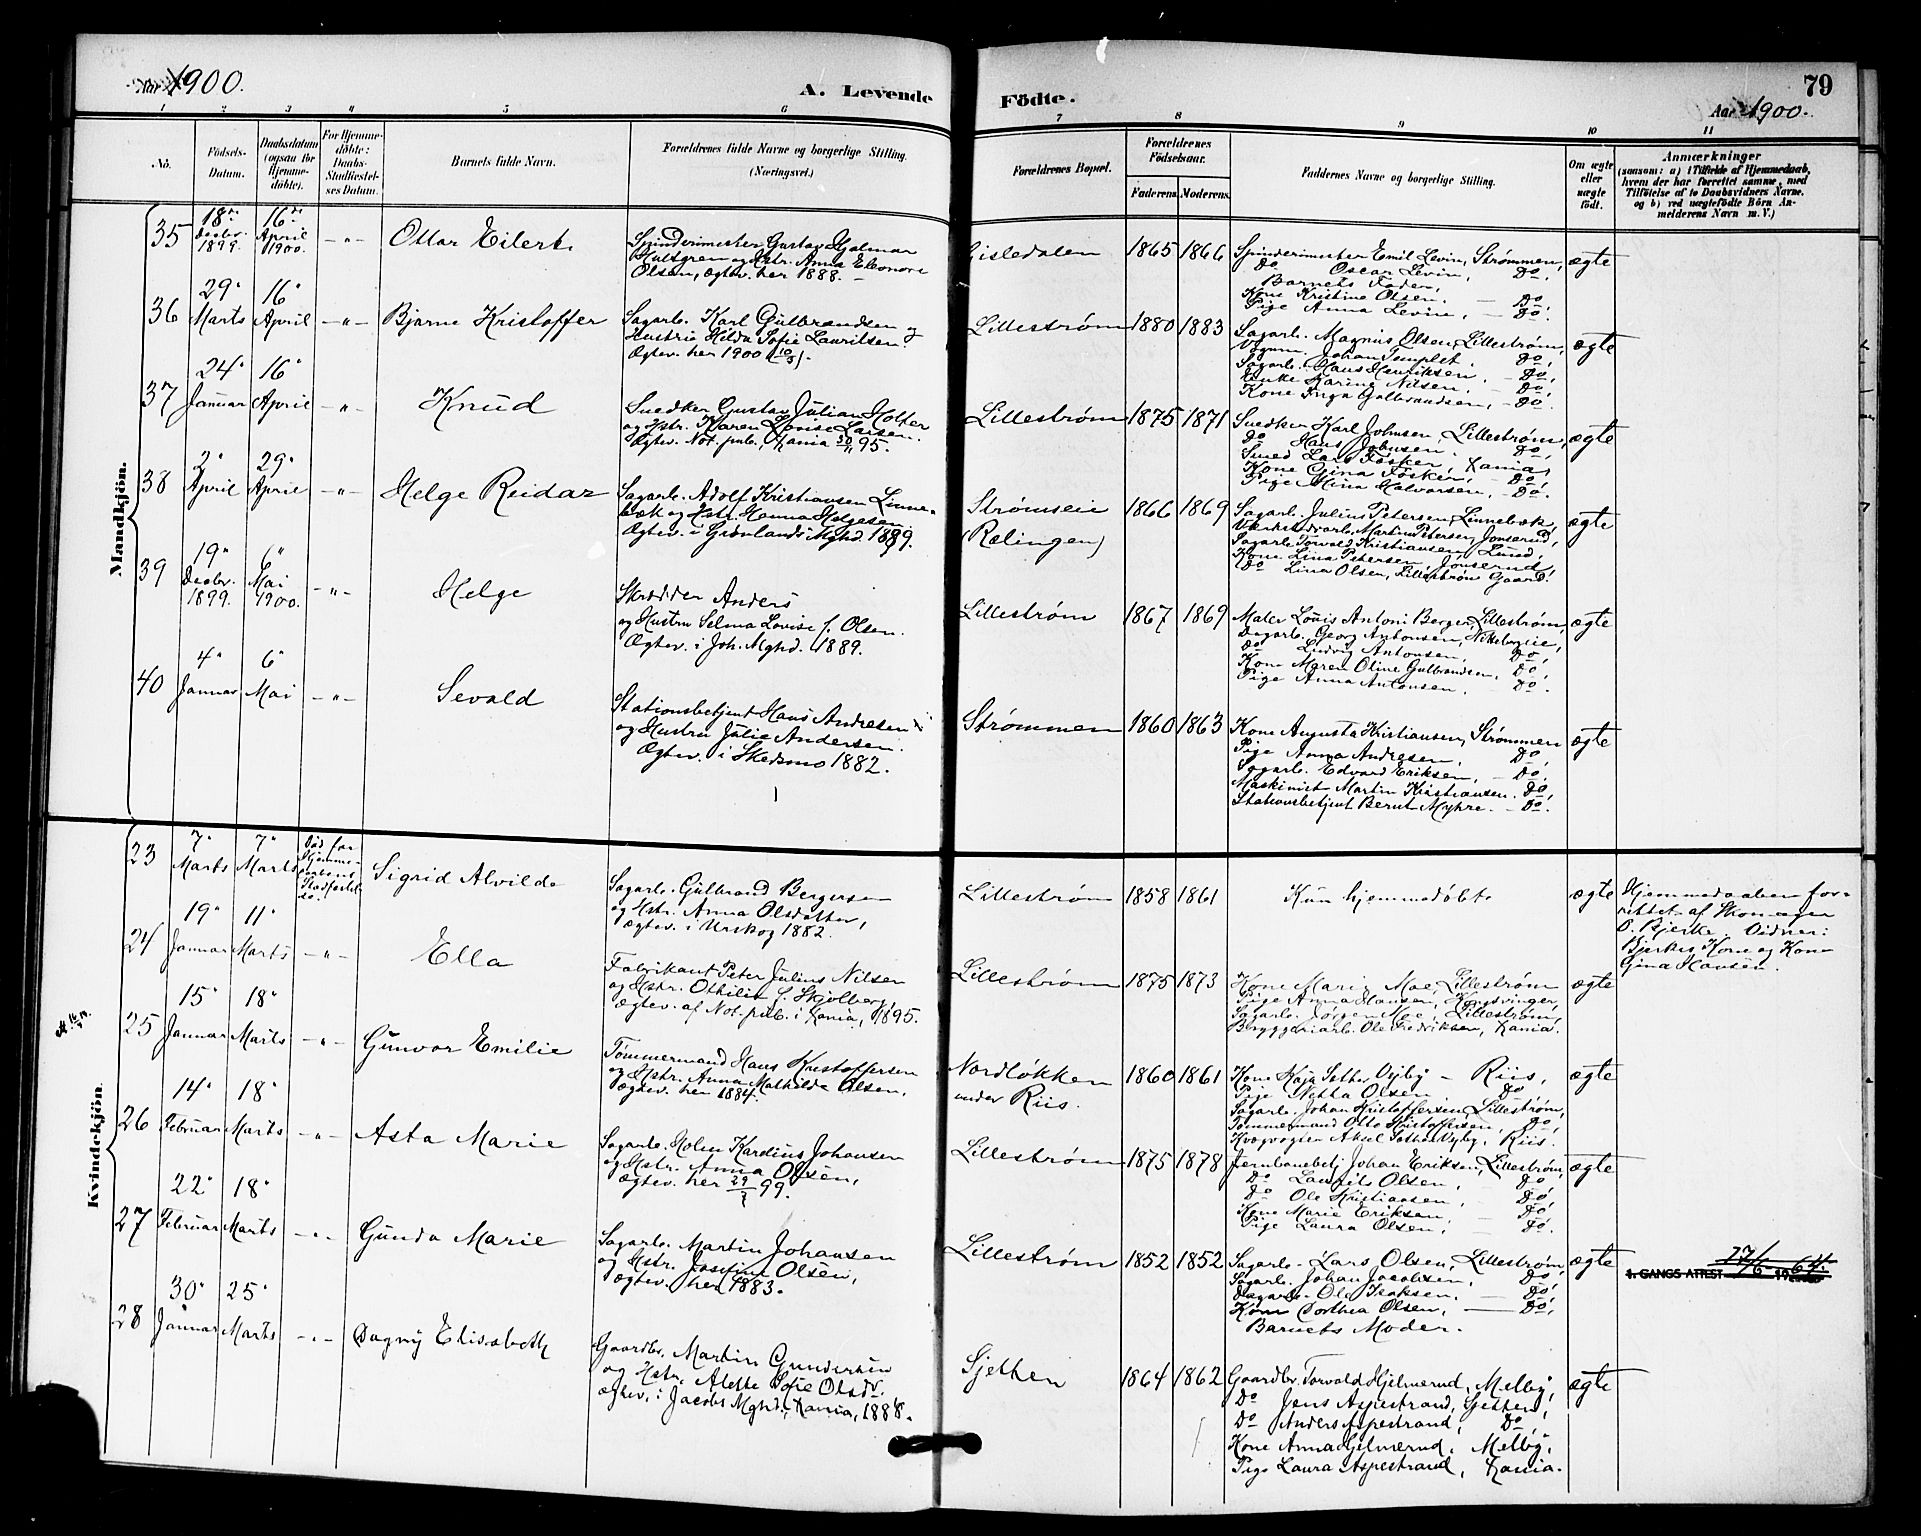 Aar 1900.
A. Levende Födte.
79
Aar 1900.
1 2 3 4 5 6 7 8 9 10 11
No.
Födsels-
Datum.
Daabsdatum
(ogsaa for
Hjemme-
döbte).
For Hjemme-
döbte:
Daabs-
Stadfæstel-
ses Datum.
Barnets fulde Navn.
Forældrenes fulde Navne og borgerlige Stilling.
(Næringsvei.)
Forældrenes Bopæl.
Forældrenes
Födselsaar.
Faderens. Moderens.
Faddernes Navne og borgerlige Stilling.
Om ægte
eller
uægte
födt.
Anmærkninger
(saasom: a) i Tilfælde af Hjemmedaab,
hvem der har forrettet samme, med
Tilföielse af to Daabsvidners Navne,
og b) ved uægtefödte Börn An-
melderens Navn m. V.)
Mandkjön.
35
18de
Decbr.
1899.
16de
April
1900.
- " -
Ottar Eilert.
Spinderimester Gustav Hjalmar
Hultgren og Hstr. Anna Eleonore
Olsen, Ægtev. her 1888. -
Lisledalen
1865 1866
Spinderimester Emil Levin, Strømmen,
Do Oscar Levin, Do,
Barnets Fader,
Kone Kristine Olsen. - Do,
Pige Anna Levin, - Do.
ægte
36
29"
Marts
16"
April
- " -
Bjarne Kristoffer
Sagarb. Karl Gulbrandsen og
Hustru Hilda Sofie Lauritsen
Ægtev. her 1900
Lillestrøm
1880 1883
Sagarb. Magnus Olsen, Lillestrøm,
Johan Templet Do,
Sagarb. Hans Henriksen. - Do,
Enke Karine Nilsen. Do,
Kone Inga Gulbrandsen, - Do.
ægte
37
24"
Januar
16"
April
- " -
Knud
Snedker Gustav Julian Holter
og Hstr. Karen Lovise Larsen.
Ægtev. Not. pub. Kania 30/11 95.
Lillestrøm
1875 1871
Snedker Karl Johnsen, Lillestrøm,
Do Hans Johnsen. Do,
Smed Lars Fosker, Kania,
Kone Gina Fosker, Do,
Pige Mina Halvorsen, - Do.
ægte
38
2"
April
29"
April
- " -
Helge Reidar
Sagarb. Adolf Kristiansen Linne-
bæk og Hstr. Hanna Helgesen.
Ægtev. i Grønlands Mghd. 1889.
Strømseie
(Rælingen)
1866 1869
Sagarb. Julius Petersen, Linnebæk,
Værkstedarb. Martin Petersen, Jonserud,
Sagarb. Torvald Kristiansen, Lund,
Kone Lina Petersen, Jonserud,
Do Lina Olsen, Lillestrøm Gaard.
ægte
39
19"
Decbr.
1899.
6"
Mai
1900.
- " -
Helge
Skrædder Anders
og Hustru Selma Lovise f. Olsen.
Ægtev. i Joh. Mghd. 1889.
Lillestrøm
1867 1869
Maler Louis Antoni Berger, Lillestrøm,
Dagarb. Georg Antonsen, Nitteberg eie,
Do Ludvig Antonsen, Do,
Kone Maren Oline Gulbrandsen, Do,
Pige Anna Antonsen. - Do.
ægte
40
4"
Januar
6"
Mai
- " -
Sevald
Stationsbetjent Hans Andresen
og Hustru Julie Andersen.
Ægtev. i Skedsmo 1882.
Strømmen
1860 1863
Kone Augusta Kristiansen, Strømmen
Pige Anna Andresen, Do,
Sagarb. Edvard Eriksen, - Do,
Maskinist Martin Kristiansen. Do,
Stationsbetjent Bernt Myhre. - Do.
ægte
Kvindekjön.
23
7"
Marts
7"
Marts
Död för
Hjemme-
daabens
Stadfæstel-
se.
Sigrid Alvilde
Sagarb. Gulbrand Bergersen
og Hstr. Anna Olsdatter,
Ægtev. i Urskog 1882.
Lillestrøm
1858 1861
Kun hjemmedøbt.
ægte
Hjemmedaaben for-
rettet af Skomager
O. Bjerke. Vidner:
Bjerkes Kone og Kone
Gina Hansen.
24
19"
Januar
11"
Marts
- " -
Ella
Fabrikant Peter Julius Nilsen
og Hstr. Othilie f. Skjølberg,
Ægtev. af Not. pub. i Kania, 1895.
Lillestrøm
1875 1873
Kone Marie Moe, Lillestrøm
Pige Anna Hansen, Kongsvinger,
Sagarb. Jørgen Moe, Lillestrøm,
Bryggeriarb. Ole Fredriksen, Kania.
ægte
25
15"
Januar
18"
Marts
- " -
Gunvor Emilie
Tømmermand Hans Kristoffersen
og Hstr. Anna Mathilde Olsen,
Ægtev. her 1884.
Nordløkken
under Riis.
1860 1861
Kone Kaja Sether Vejby - Riis,
Pige Netta Olsen Do
Sagarb. Johan Kristoffersen, Lillestrøm,
Tømmermand Otto Kristoffersen, Do,
Kvægvogter Aksel Sether Vejby, Riis.
ægte
26
14"
Februar
18"
Marts
- " -
Asta Marie
Sagarb. Holm Kardius Johansen
og Hstr. Anna Olsen,
Ægtev. her 29/7 99.
Lillestrøm
1875 1878
Jernbanebetj. Johan Eriksen, Lillestrøm,
Do Laurits Olsen, - Do
Do Ole Kristiansen, Do,
Kone Marie Eriksen - Do,
Pige Laura Olsen, Do.
ægte
27
22"
Februar
18"
Marts
- " -
Gunda Marie
Sagarb. Martin Johansen
og Hstr. Josefine Olsen,
Ægtev. her 1883.
Lillestrøm
1852 1852
Sagarb. Lars Olsen, Lillestrøm,
Sagarb. Johan Jacobsen, Do,
Dagarb. Ole Isaksen, Do,
Kone Dorthea Olsen, - Do,
Barnets Moder.
ægte
1. GANGS ATTEST 17/6 1964.
28
30"
Januar
25"
Marts
- " -
Dagny Elisabeth
Gaardbr. Martin Gundersen
og Hstr. Alette Sofie Olsdr.
Ægtev. i Jacobs Mghd., Kania, 1888.
Sjethen
1864 1862
Gaardbr. Torvald Hjelmerud, Melby,
Do Jens Aspestrand, Sjethen,
Do Anders Aspestrand, Do,
Kone Anna Hjelmerud, Melby,
Pige Laura Aspestrand, Kania.
ægte